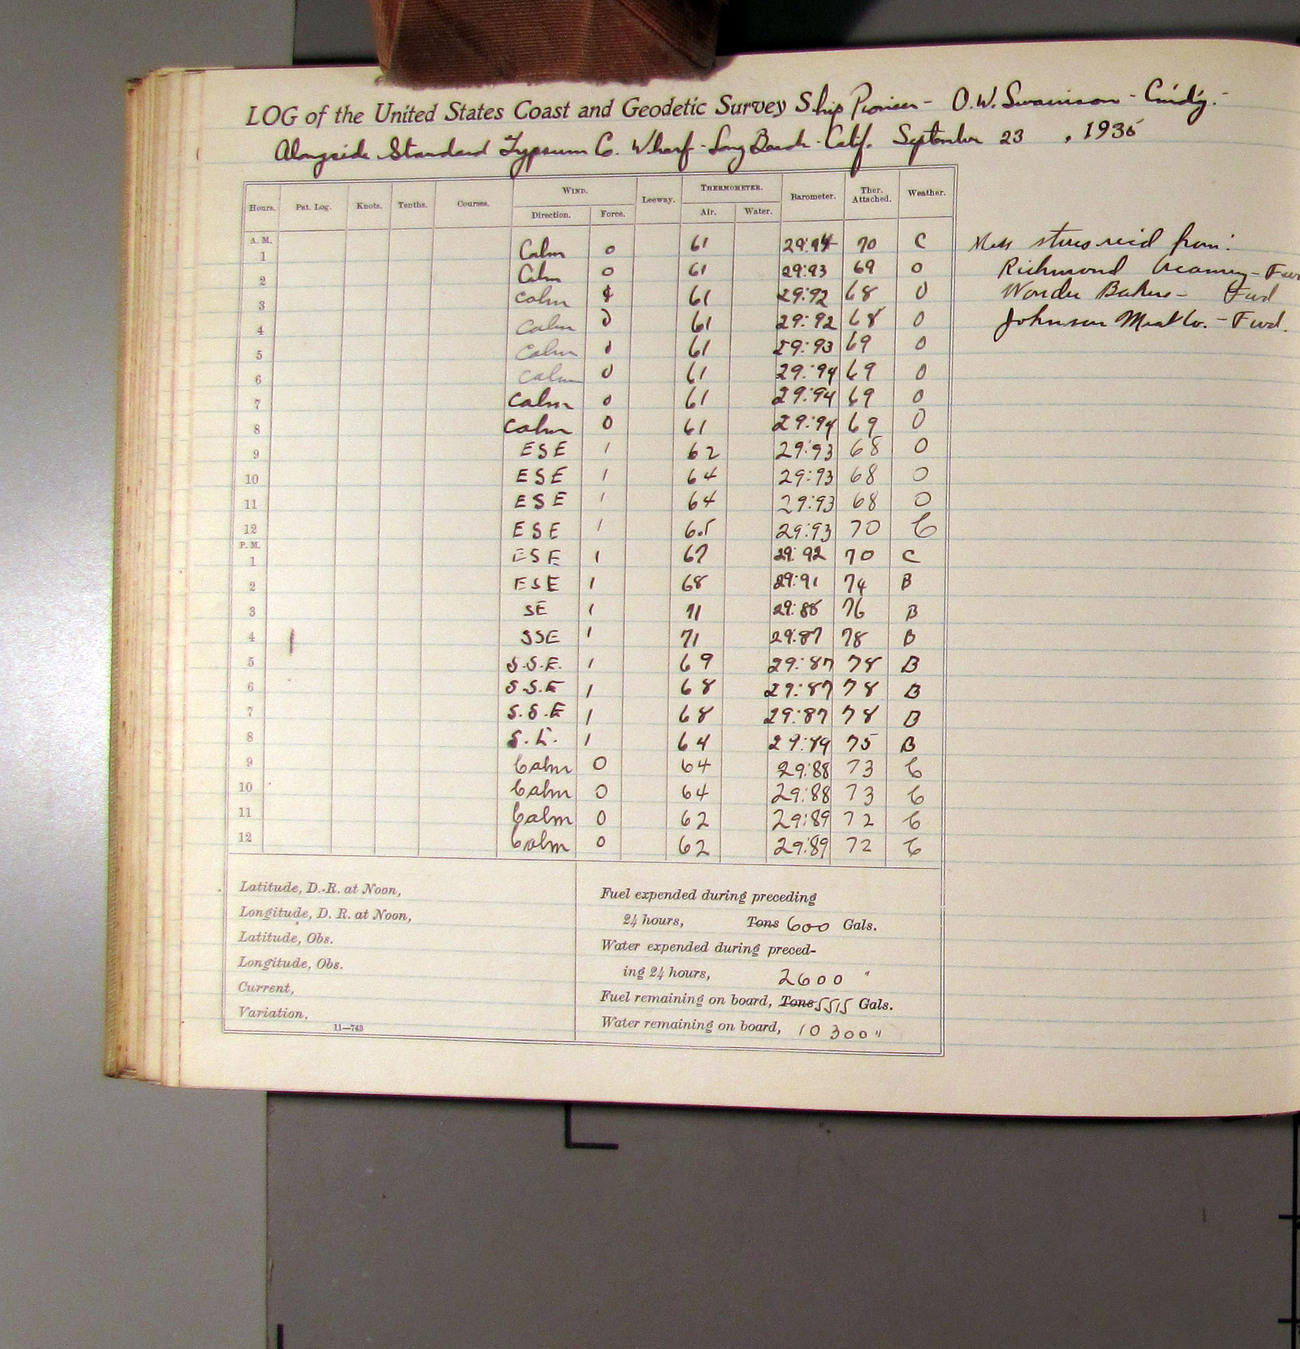 LOG of the United States Coast and Geodetic Survey Ship Pioneer - O.W. Swainson - Cmd'g. -
Alongside Standard Gypsum Co. Wharf - Long Beach - Calif. September 23, 1935
Hours. Pat. Log. Knots. Tenths. Courses. WIND. Leeway. THERMOMETER. Barometer. Ther. Attached. Weather.
Direction. Force. Air. Water.
A. M.
1 Calm 0 61 29:94 70 C
2 Calm 0 61 29:93 69 O
3 Calm 0 61 29:92 68 O
4 Calm 0 61 29:92 68 O
5 Calm 0 61 29:93 69 O
6 Calm 0 61 29:94 69 O
7 Calm 0 61 29:94 69 O
8 Calm 0 61 29:94 69 O
9 ESE 1 62 29:93 68 O
10 ESE 1 64 29:93 68 O
11 ESE 1 64 29:93 68 O
12 ESE 1 65 29:93 70 C
P. M.
1 ESE 1 67 29:92 70 C
2 ESE 1 68 29:91 74 B
3 SE 1 71 29:88 76 B
4 SSE 1 71 29:87 78 B
5 S.S.E. 1 69 29:87 78 B
6 S.S.E 1 68 29:87 78 B
7 S.S.E 1 68 29:87 78 B
8 S.E. 1 64 29:89 75 B
9 Calm 0 64 29:88 73 C
10 Calm 0 64 29:88 73 C
11 Calm 0 62 29:89 72 C
12 Calm 0 62 29:89 72 C
Mess stores rec'd from:
Richmond Creamery - Fwd
Wonder Bakers - Fwd
Johnson Meat Co. - Fwd.
Latitude, D.-R. at Noon,
Longitude, D. R. at Noon,
Latitude, Obs.
Longitude, Obs.
Current,
Variation,
11—743
Fuel expended during preceding
24 hours, Tons 600 Gals.
Water expended during preced-
ing 24 hours, 2600 "
Fuel remaining on board, Tons 5515 Gals.
Water remaining on board, 10300 "